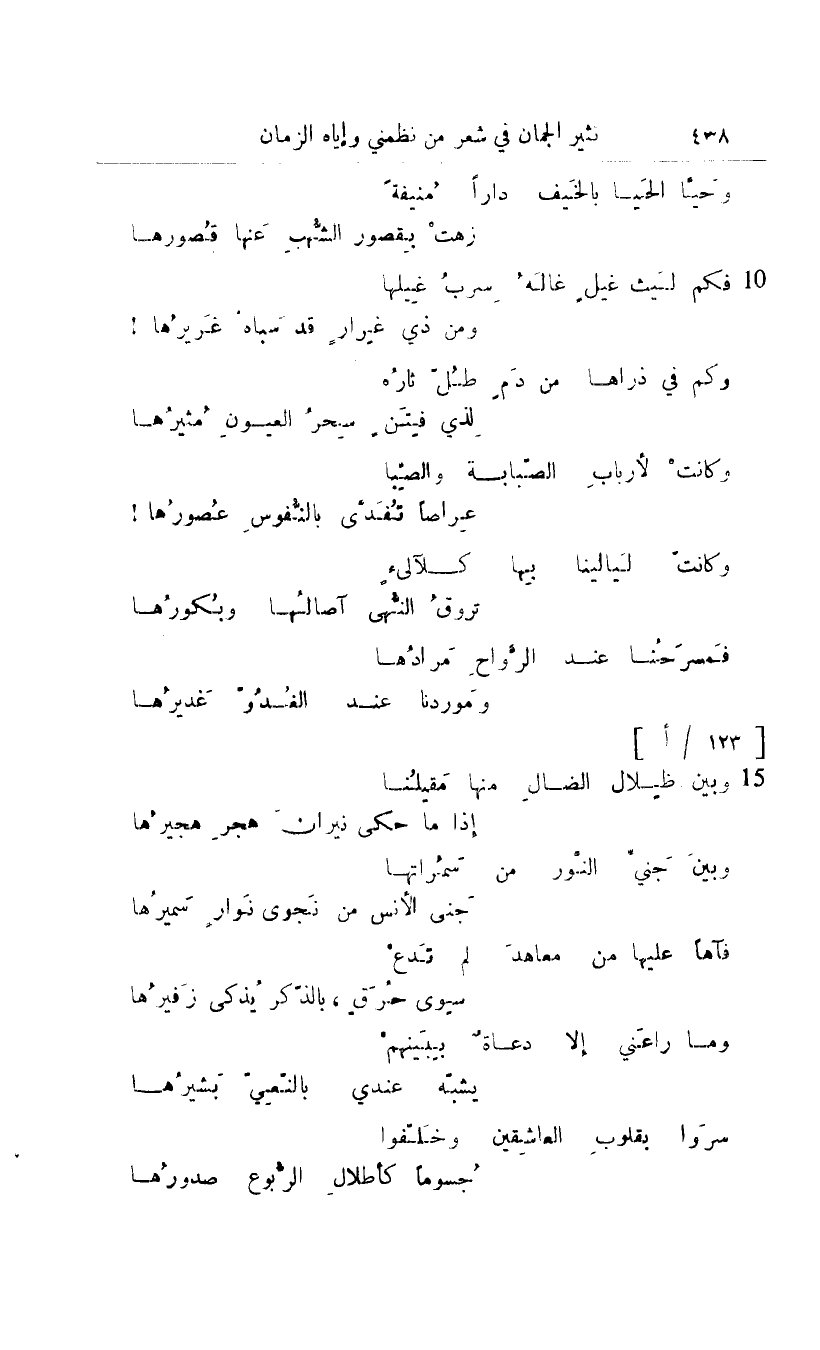 ٤٣٨ نثير الجمان في شعر من نظمني وإياه الزمان
وَحيَّا الحَيـا بالخَيف داراً مُنيفةً
زهتْ بِقصور الشُّهبِ عَنها قُصورهـا
10 فكم لَيث غيلٍ غالَهُ سِربُ غيلها
ومن ذي غِرارٍ قد سَباهُ غَريرُها !
وكم في ذراهـا من دَمٍ طُلَّ ثارُه
لِذي فِتَنٍ سِحرُ العيـونِ مُثيرُهـا
وكانتْ لأربابِ الصَّبابـة والصِّبا
عِراصاً تُفَدَّى بالنُّفوسِ عُصورُها !
وكانتْ لَيالينا بِها كـلآلىءٍ
تروقُ النُّهى آصالُهـا وبُكورُهـا
فَمسرَحُنـا عنـد الرَّواحِ مَرادُهـا
وَموردنا عنـد الغُـدُوّ غَديرُهـا
[ ١٢٣ / أ ]
15 وبين ظِـلال الضـالِ منها مَقيلُنـا
إذا ما حكى نيرانَ هجرٍ هجيرُها
وبينَ جَنيِّ النَّور من سَمُراتهـا
جَنى الأنس من نَجوى نَوارٍ سَميرُها
فآهاً عليها من معاهدَ لم تَدعْ
سِوى حُرَقٍ ، بالذّكر يُذكى زَفيرُها
ومـا راعَني إلا دعـاةٌ بِبَينهمْ
يشبَّه عندي بالنَّعيِّ بَشيرُهـا
سرَوا بقلوبِ العاشِقين وخَلَّفوا
جُسوماً كأطلالِ الرُّبوع صدورُهـا